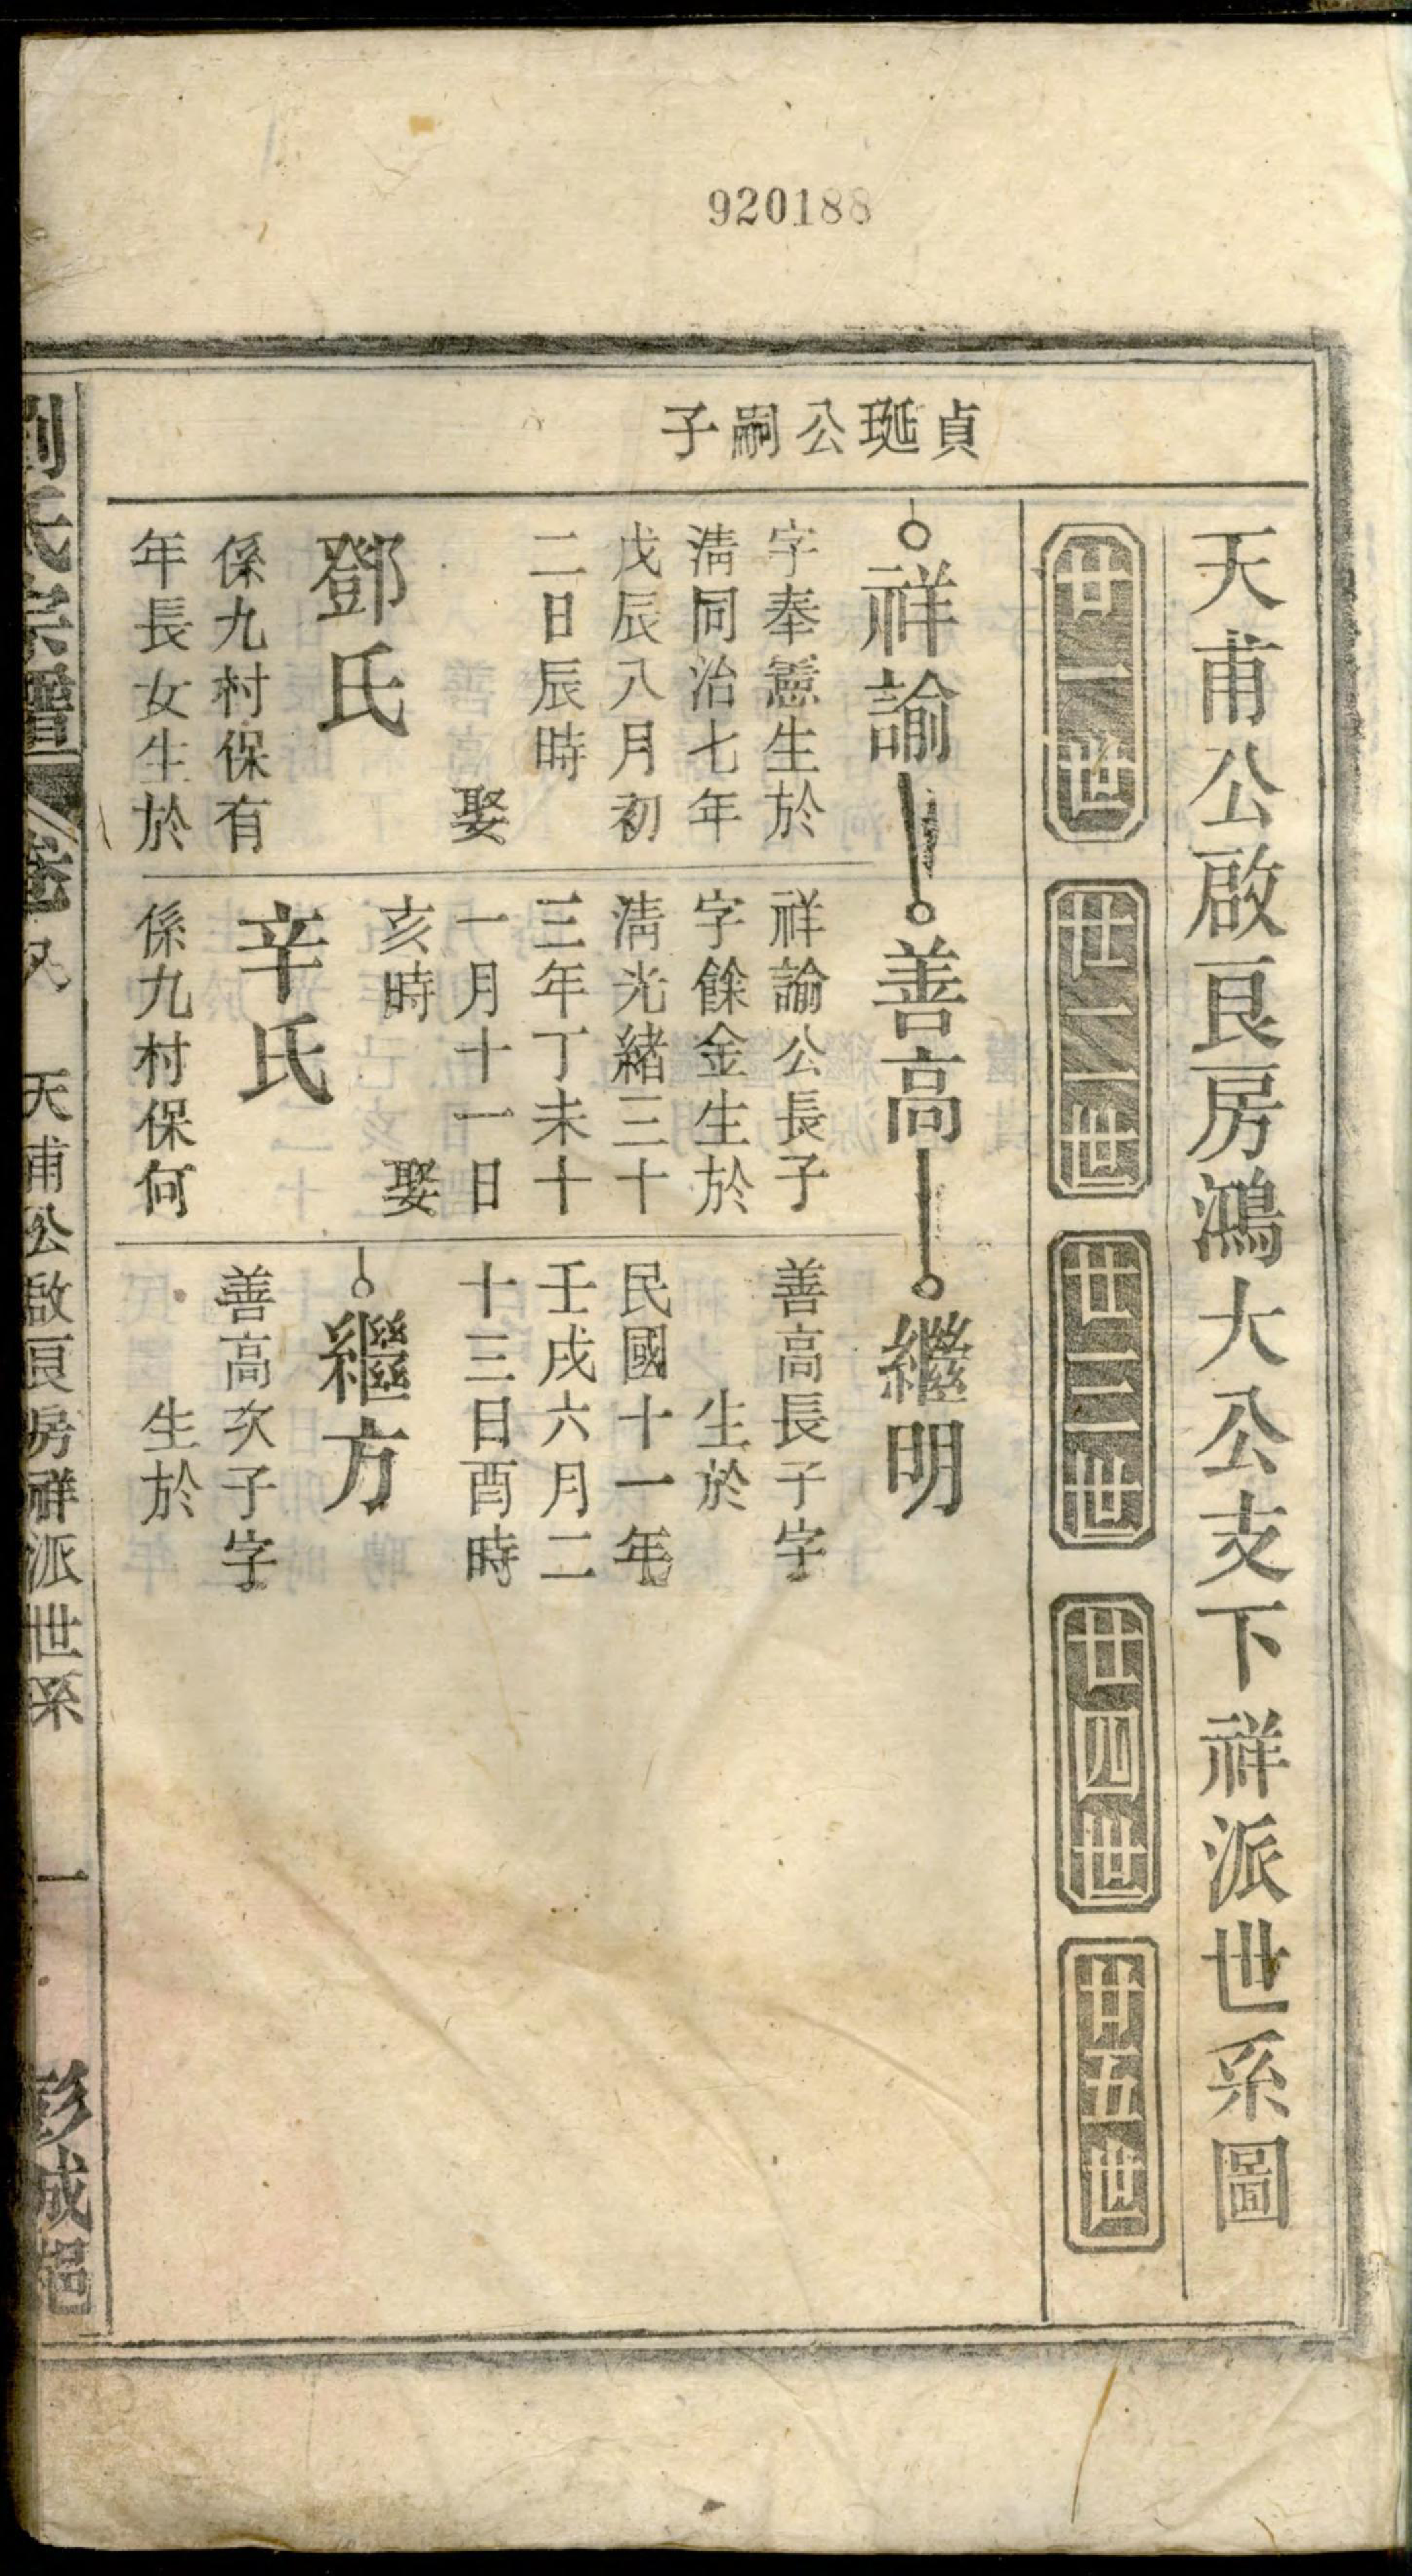 920188
天甫公啟艮房鴻大公支下祥派世系圖
廿一世
廿二世
廿三世
廿四世
廿五世
貞珽公嗣子
祥諭
字奉憲生於
淸同治七年
戊辰八月初
二日辰時
娶
鄧氏
係九村保有
年長女生於
善高
祥諭公長子
字餘金生於
淸光緒三十
三年丁未十
一月十一日
亥時 娶
辛氏
係九村保何
繼明
善高長子字
生於
民國十一年
壬戌六月二
十三日酉時
繼方
善高次子字
生於
劉氏宗譜 卷 天甫公啟艮房祥派世系 一 彭城邑